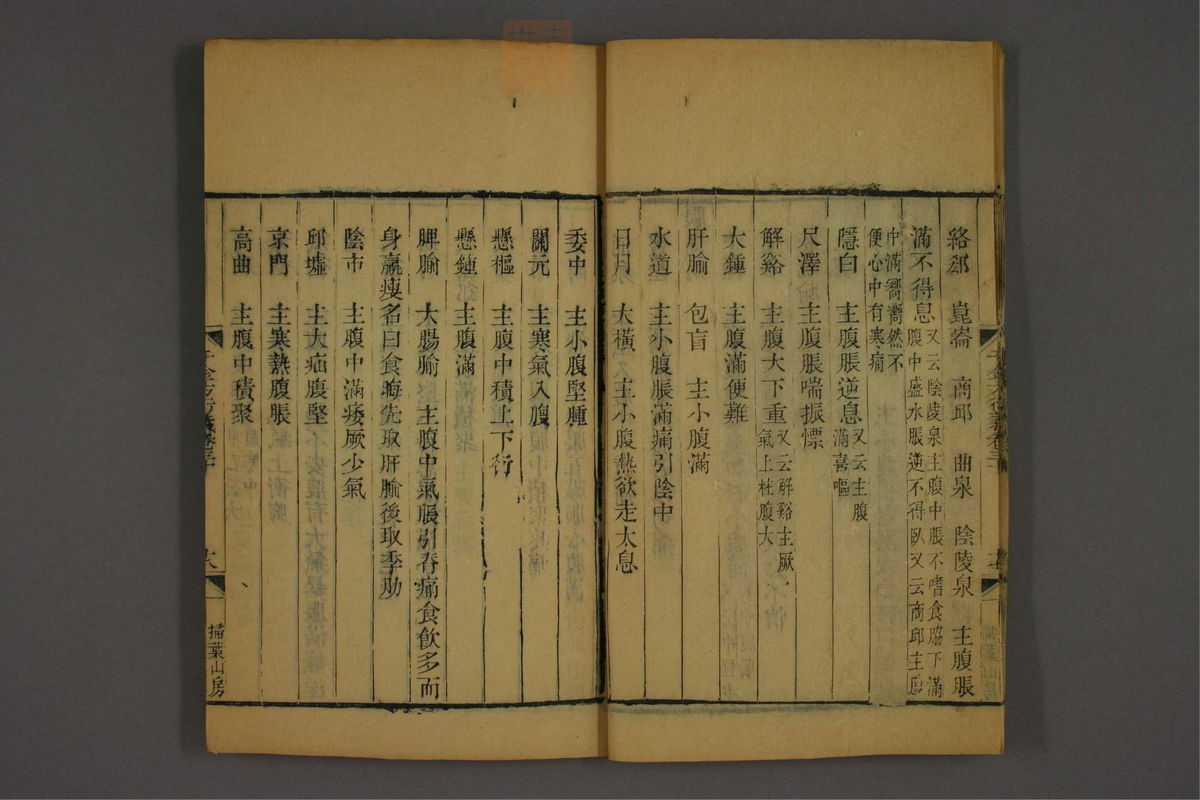 絡郄　崑崙　商邱　曲泉　陰陵泉　主腹脹
滿不得息又云陰陵泉主腹中脹不嗜食脇下滿
腹中盛水脹逆不得臥又云商邱主腹
中滿嚮嚮然不
便心中有寒痛
隱白　主腹脹逆息又云主腹
滿喜嘔
尺澤　主腹脹喘振慄
解谿　主腹大下重又云解谿主厥
氣上柱腹大
大鍾　主腹滿便難
肝腧　包肓　主小腹滿
水道　主小腹脹滿痛引陰中
日月　大橫　主小腹熱欲走太息
委中　主小腹堅腫
關元　主寒氣入腹
懸樞　主腹中積上下行
懸鍾　主腹滿
脾腧　大腸腧　主腹中氣脹引脊痛食飲多而
身羸瘦名曰食晦先取肝腧後取季肋
陰市　主腹中滿痿厥少氣
邱墟　主大疝腹堅
京門　主寒熱腹脹
高曲　主腹中積聚
千金方衍義卷三十
大
掃葉山房